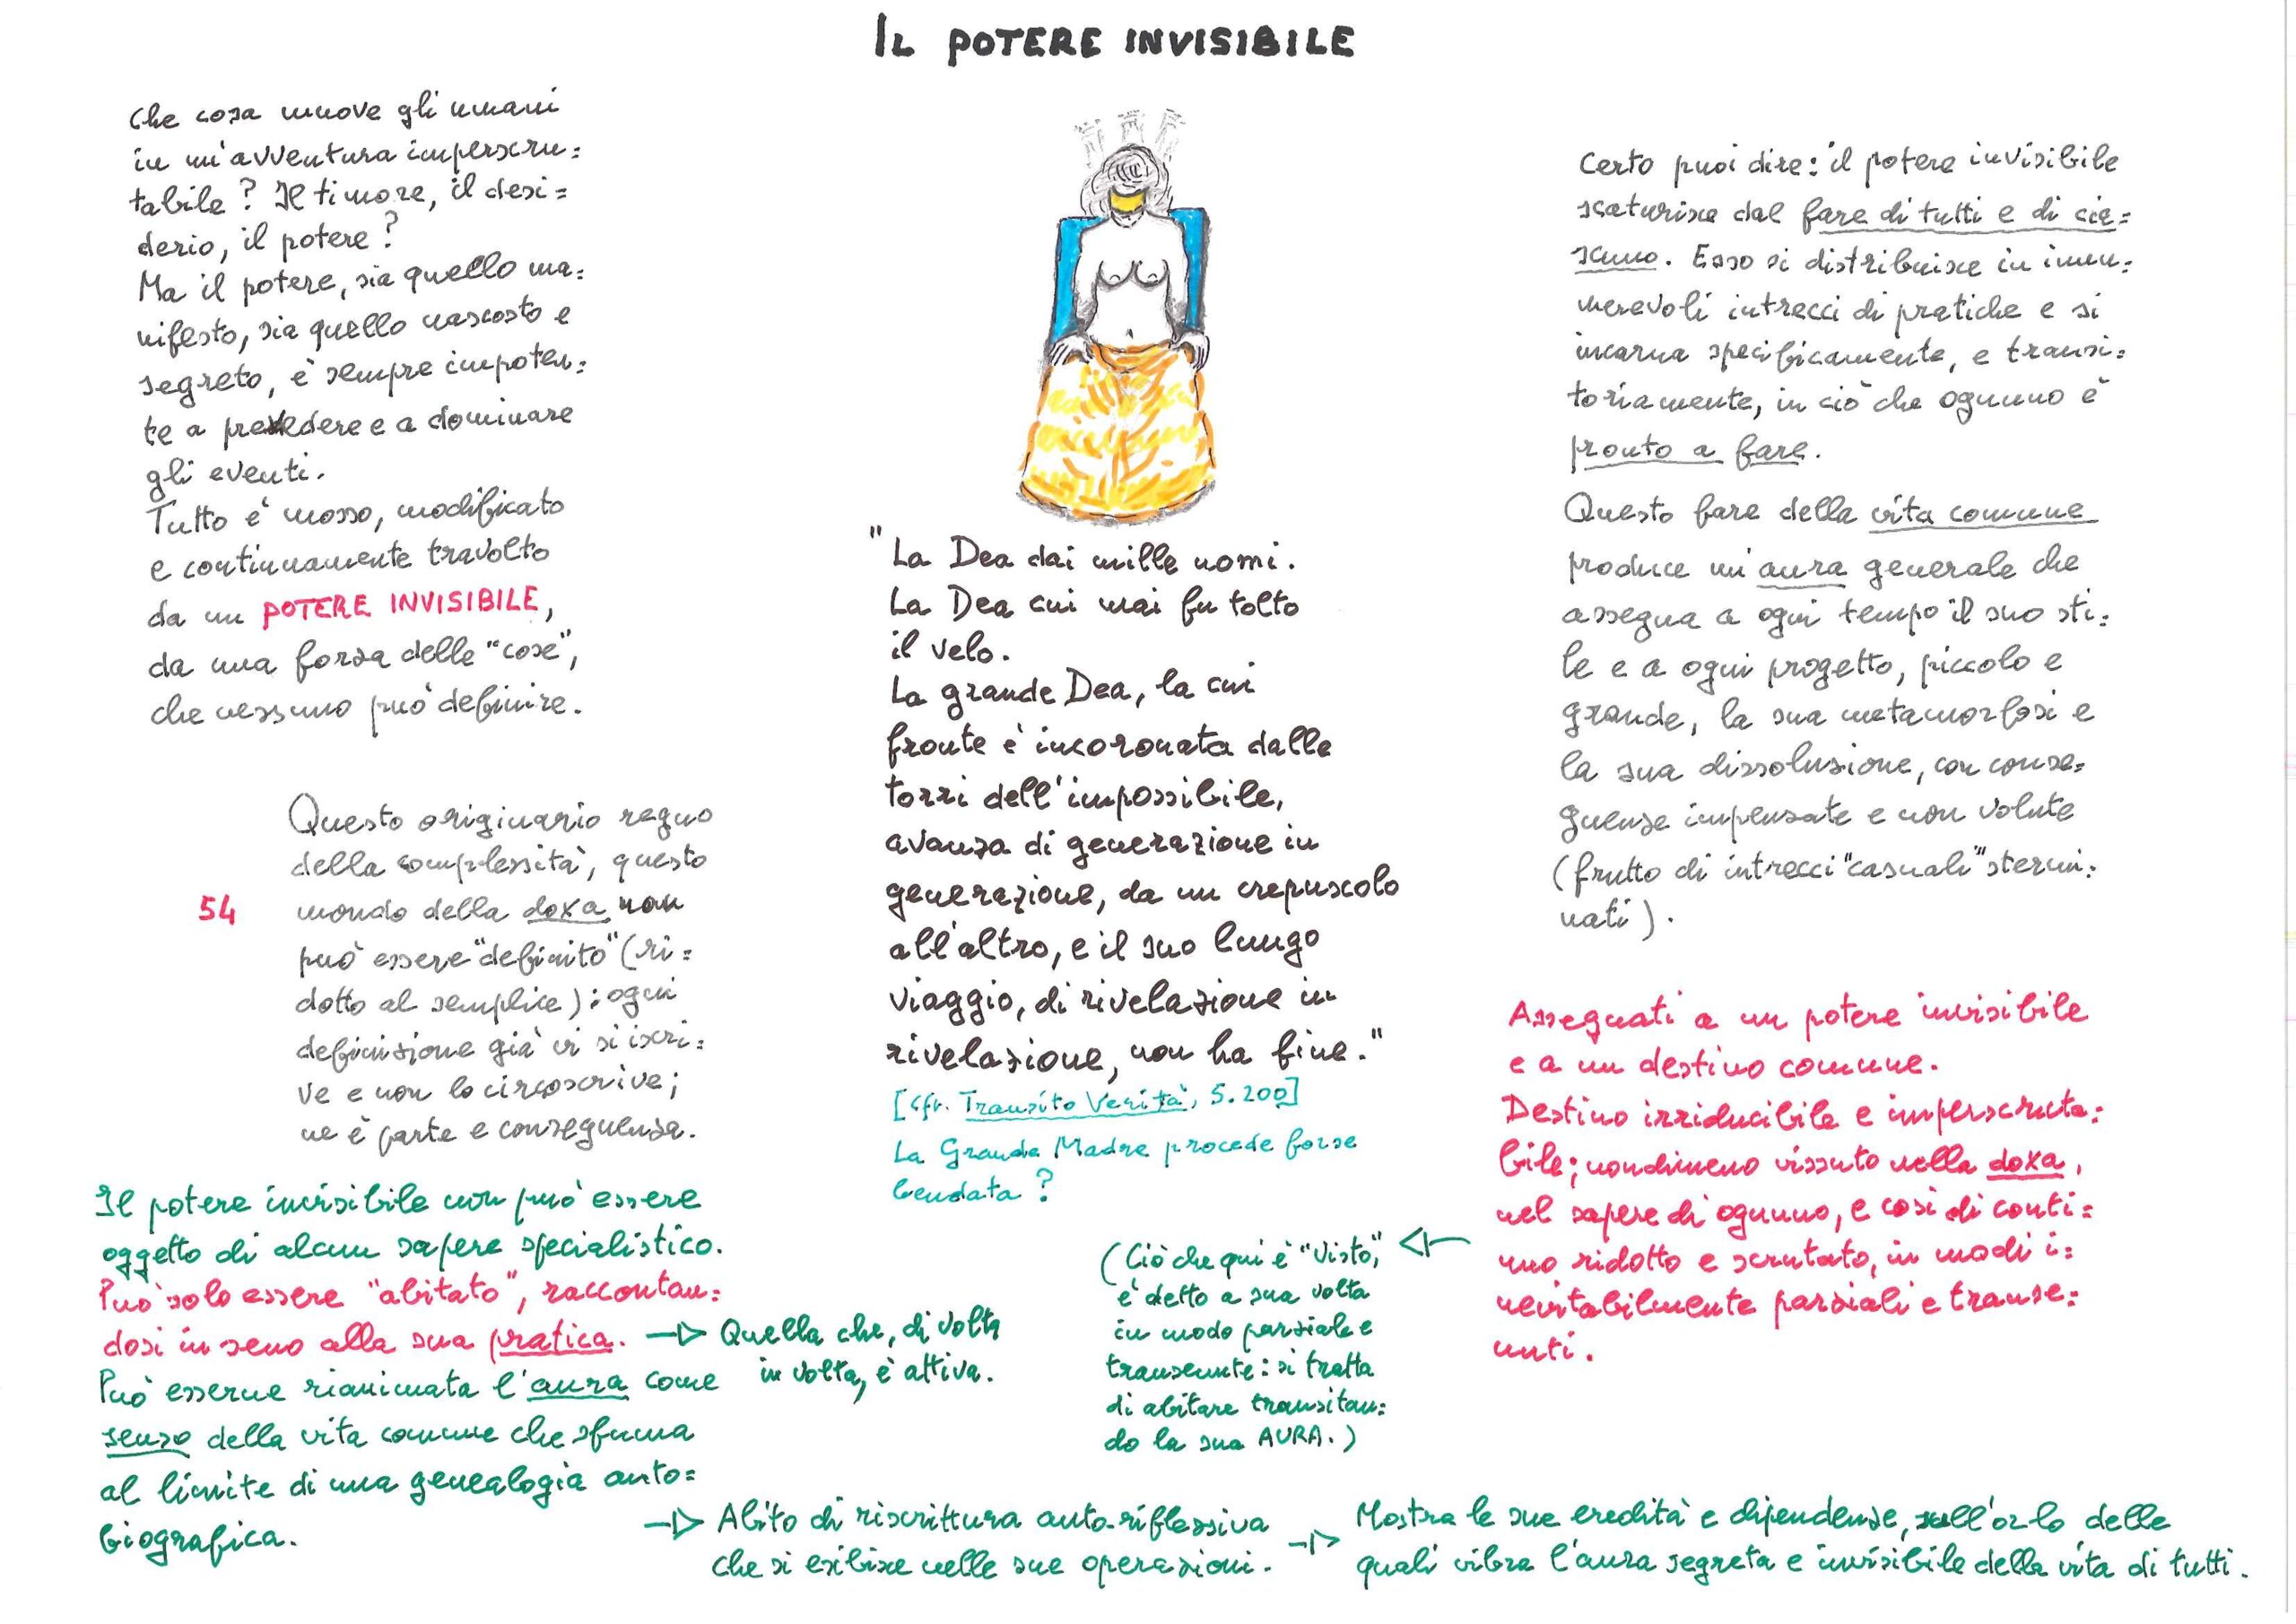 IL POTERE INVISIBILE
Che cosa muove gli umani
in un'avventura imperscru=
tabile? Il timore, il desi=
derio, il potere?
Ma il potere, sia quello ma=
nifesto, sia quello nascosto e
segreto, è sempre impoten=
te a prevedere e a dominare
gli eventi.
Tutto è mosso, modificato
e continuamente travolto
da un POTERE INVISIBILE,
da una forza delle "cose",
che nessuno può definire.
54
Questo originario regno
della complessità, questo
mondo della doxa non
può essere "definito" (ri=
dotto al semplice): ogni
definizione già vi si iscri=
ve e non lo circoscrive;
ne è parte e conseguenza.
Il potere invisibile non può essere
oggetto di alcun sapere specialistico.
Può solo essere "abitato", raccontan=
dosi in seno alla sua pratica.
Può esserne rianimata l'aura come
senso della vita comune che sfuma
al limite di una genealogia auto=
biografica.
Quella che, di volta
in volta, è attiva.
"La Dea dai mille nomi.
La Dea cui mai fu tolto
il velo.
La grande Dea, la cui
fronte è incoronata dalle
torri dell'impossibile,
avanza di generazione in
generazione, da un crepuscolo
all'altro, e il suo lungo
viaggio, di rivelazione in
rivelazione, non ha fine."
[Cfr. Transito Verità, 5.200]
La Grande Madre procede forse
bendata?
Certo puoi dire: il potere invisibile
scaturisce dal fare di tutti e di cia=
scuno. Esso si distribuisce in innu=
merevoli intrecci di pratiche e si
incarna specificamente, e transi=
toriamente, in ciò che ognuno è
pronto a fare.
Questo fare della vita comune
produce un'aura generale che
assegna a ogni tempo il suo sti=
le e a ogni progetto, piccolo e
grande, la sua metamorfosi e
la sua dissoluzione, con conse=
guenze impensate e non volute
(frutto di intrecci "casuali" stermi=
nati).
Assegnati a un potere invisibile
e a un destino comune.
Destino irriducibile e imperscruta=
bile; nondimeno vissuto nella doxa,
nel sapere di ognuno, e così di conti=
nuo ridotto e scrutato, in modi i=
nevitabilmente parziali e transe=
unti.
(Ciò che qui è "visto",
è detto a sua volta
in modo parziale e
transeunte: si tratta
di abitare transitan=
do la sua AURA.)
Abito di riscrittura auto-riflessiva
che si esibisce nelle sue operazioni.
Mostra le sue eredità e dipendenze, sull'orlo delle
quali vibra l'aura segreta e invisibile della vita di tutti.